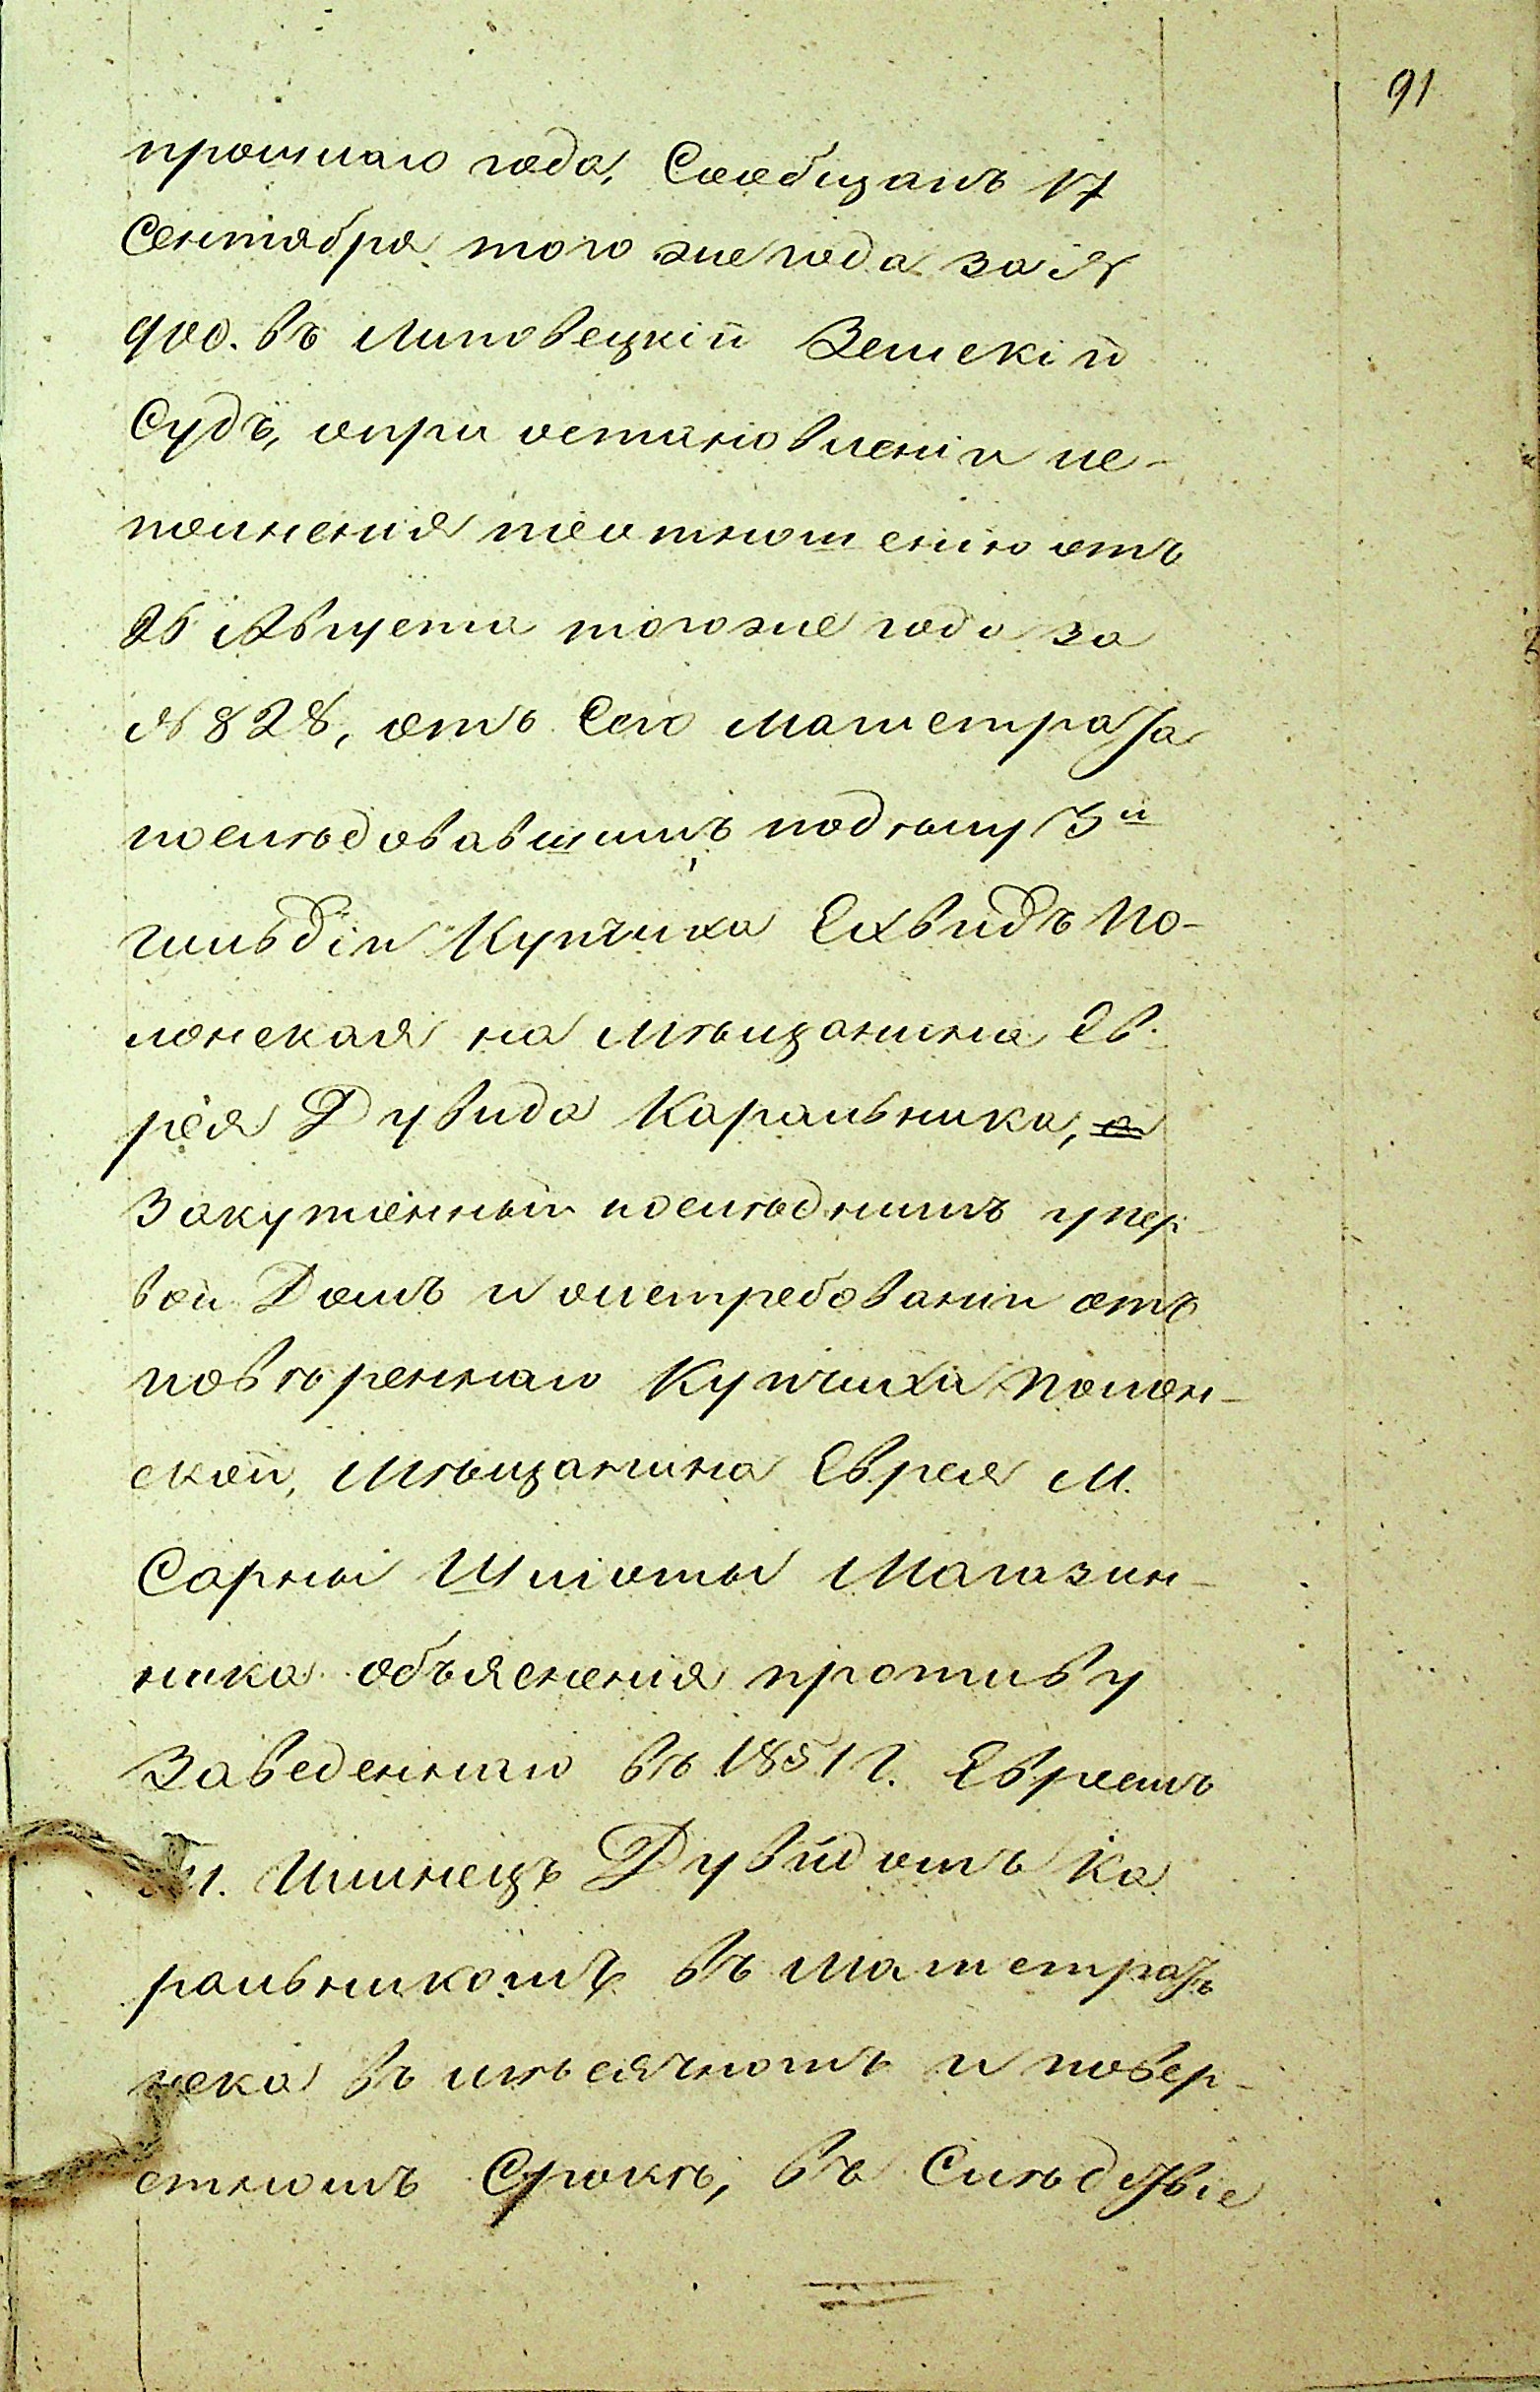 91
прошлаго года, Сообщалъ 17
Сентября того же года за №
900. въ Липовецкій Земскій
Судъ, опріостановленіи ис-
полненія по отношенію отъ
26 Августа тогоже года за
№ 828, отъ Сего Магистрата
послѣдовавшимъ подѣлу 3й
гильдіи Купчиха Ехвидъ По-
лонская на мѣщанина Ев-
рея Дувида Каральника, а
Закупленный послѣднимъ упер-
вой Домъ и оистребованіи отъ
повѣреннаго Купчихи Полон-
ской, мѣщанина Еврея м.
Сарны Шліомы Магазин-
ника объясненія противу
Заведеннаго въ 1851 г. Евреемъ
м. Илинецъ Дувидомъ Ка
ральникомъ въ магистратѣ
иска въ мѣсячномъ и повер-
стномъ Срокѣ, въ Слѣдствіе